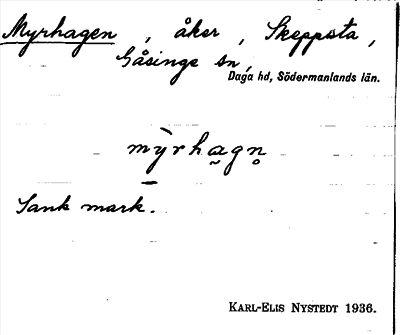 Myrhagen, åker, Skeppsta,
Gåsinge sn,
Daga hd, Södermanlands län.
mỳrha̰gn̥
Sank mark.
KARL-ELIS NYSTEDT 1936.